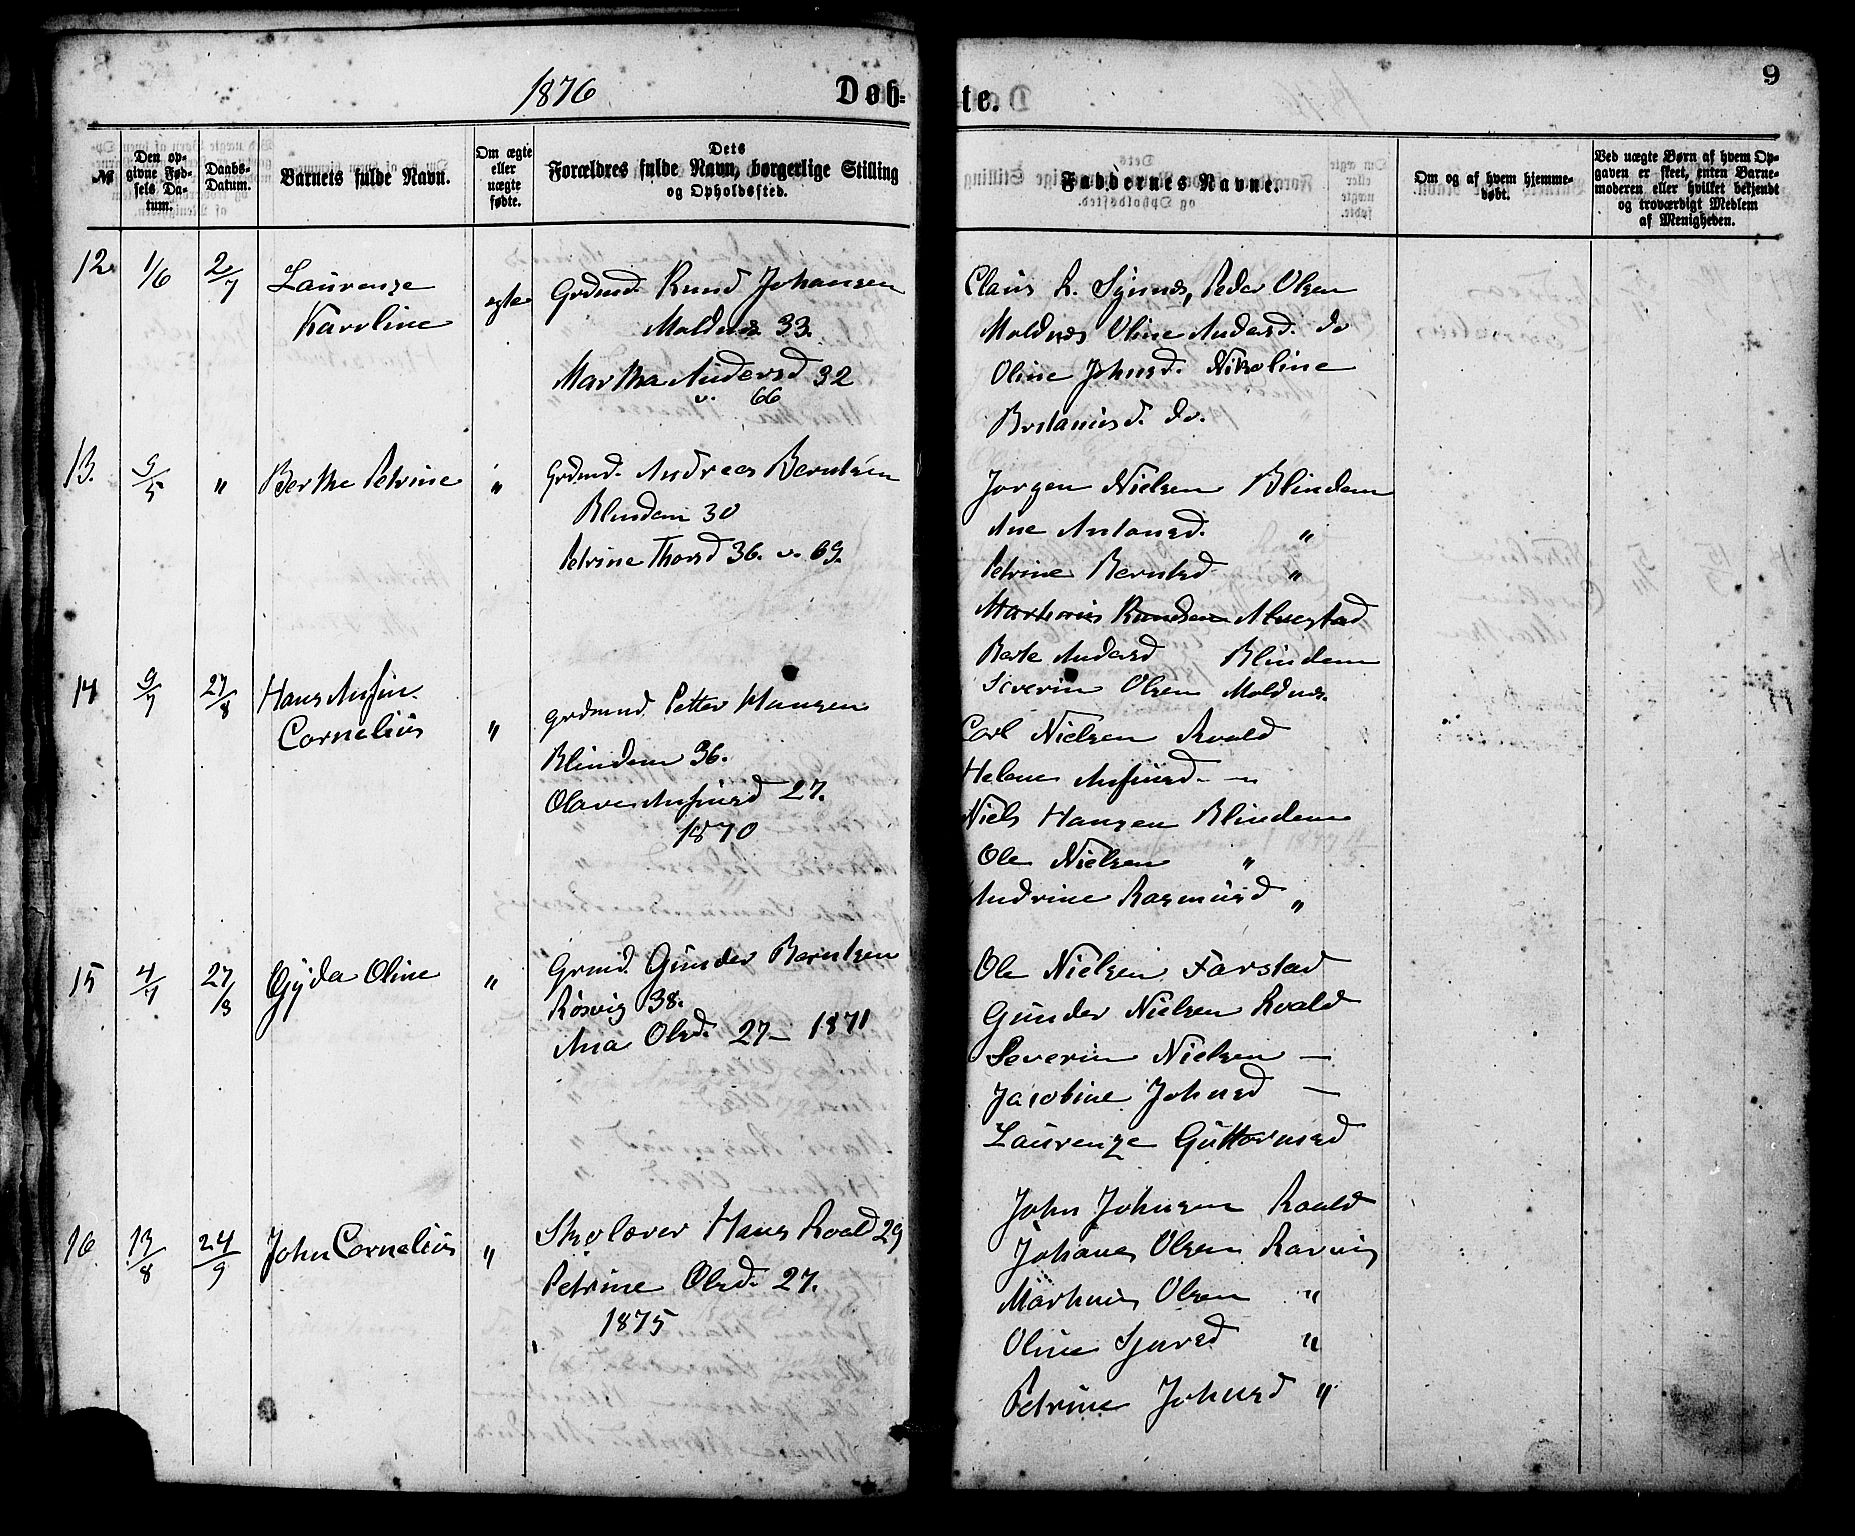 1876
Døb-
te.
9
№
Den op-
givne Fød-
sels Da-
tum.
Daabs-
Datum.
Barnets fulde Navn.
Om ægte
eller
uægte
fødte.
Dets
Forældres fulde Navn, borgerlige Stilling
og Opholdssted.
Faddernes Navne.
Om og af hvem hjemme-
døbt.
Ved uægte Børn af hvem Op-
gaven er skeet, enten Barne-
moderen eller hvilket bekjendt
og troværdigt Medlem
af Menigheden.
12. 1/6 2/7 Laurenze
Karoline
egte
Grdmd. Knud Johansen
Moldnæs 33.
Martha Andersd 32
v. 66
Claus L. Synnes, Peder Olsen
Moldnæs Oline Andersd. do
Oline Johnsd. Nikoline
do.
13. 9/5 " Berthe Petrine "
Grdmd. Andreas Berntsen
Blindem 30
Petrine Thorsd 36. v. 69.
Jørgen Nielsen Blindem
Ane Antonsd. "
Petrine Berntsd "
Marthinus Knudsen Alnestad
Berte Andersd Blindem
Severin Olsen Moldnæs.
14 9/7 27/8 Hans Anfin
Cornelius "
grdmd. Petter Hansen
Blindem 36.
Olave Anfinsd 27.
1870
Carl Nielsen Roald
Helene Anfinsd. —
Niels Hansen Blindem
Ole Nielsen "
Andrine Rasmusd "
15 4/7 27/8 Gyda Oline "
Grmd. Gunder Berntsen
Røsvig 38.
Ana Olsd. 27 – 1871
Ole Nielsen Farstad
Gunder Nielsen Roald
Severin Nielsen —
Jacobine Johnsd —
Laurenze Guttormsd
16 13/8 24/9 John Cornelius "
Skolærer Hans Roald 29
Petrine Olsd. 27.
1875
John Johnsen Roald
Johanes Olsen Rørvig
Marthinus Olsen "
Oline Sjursd "
Petrine Johnsd "